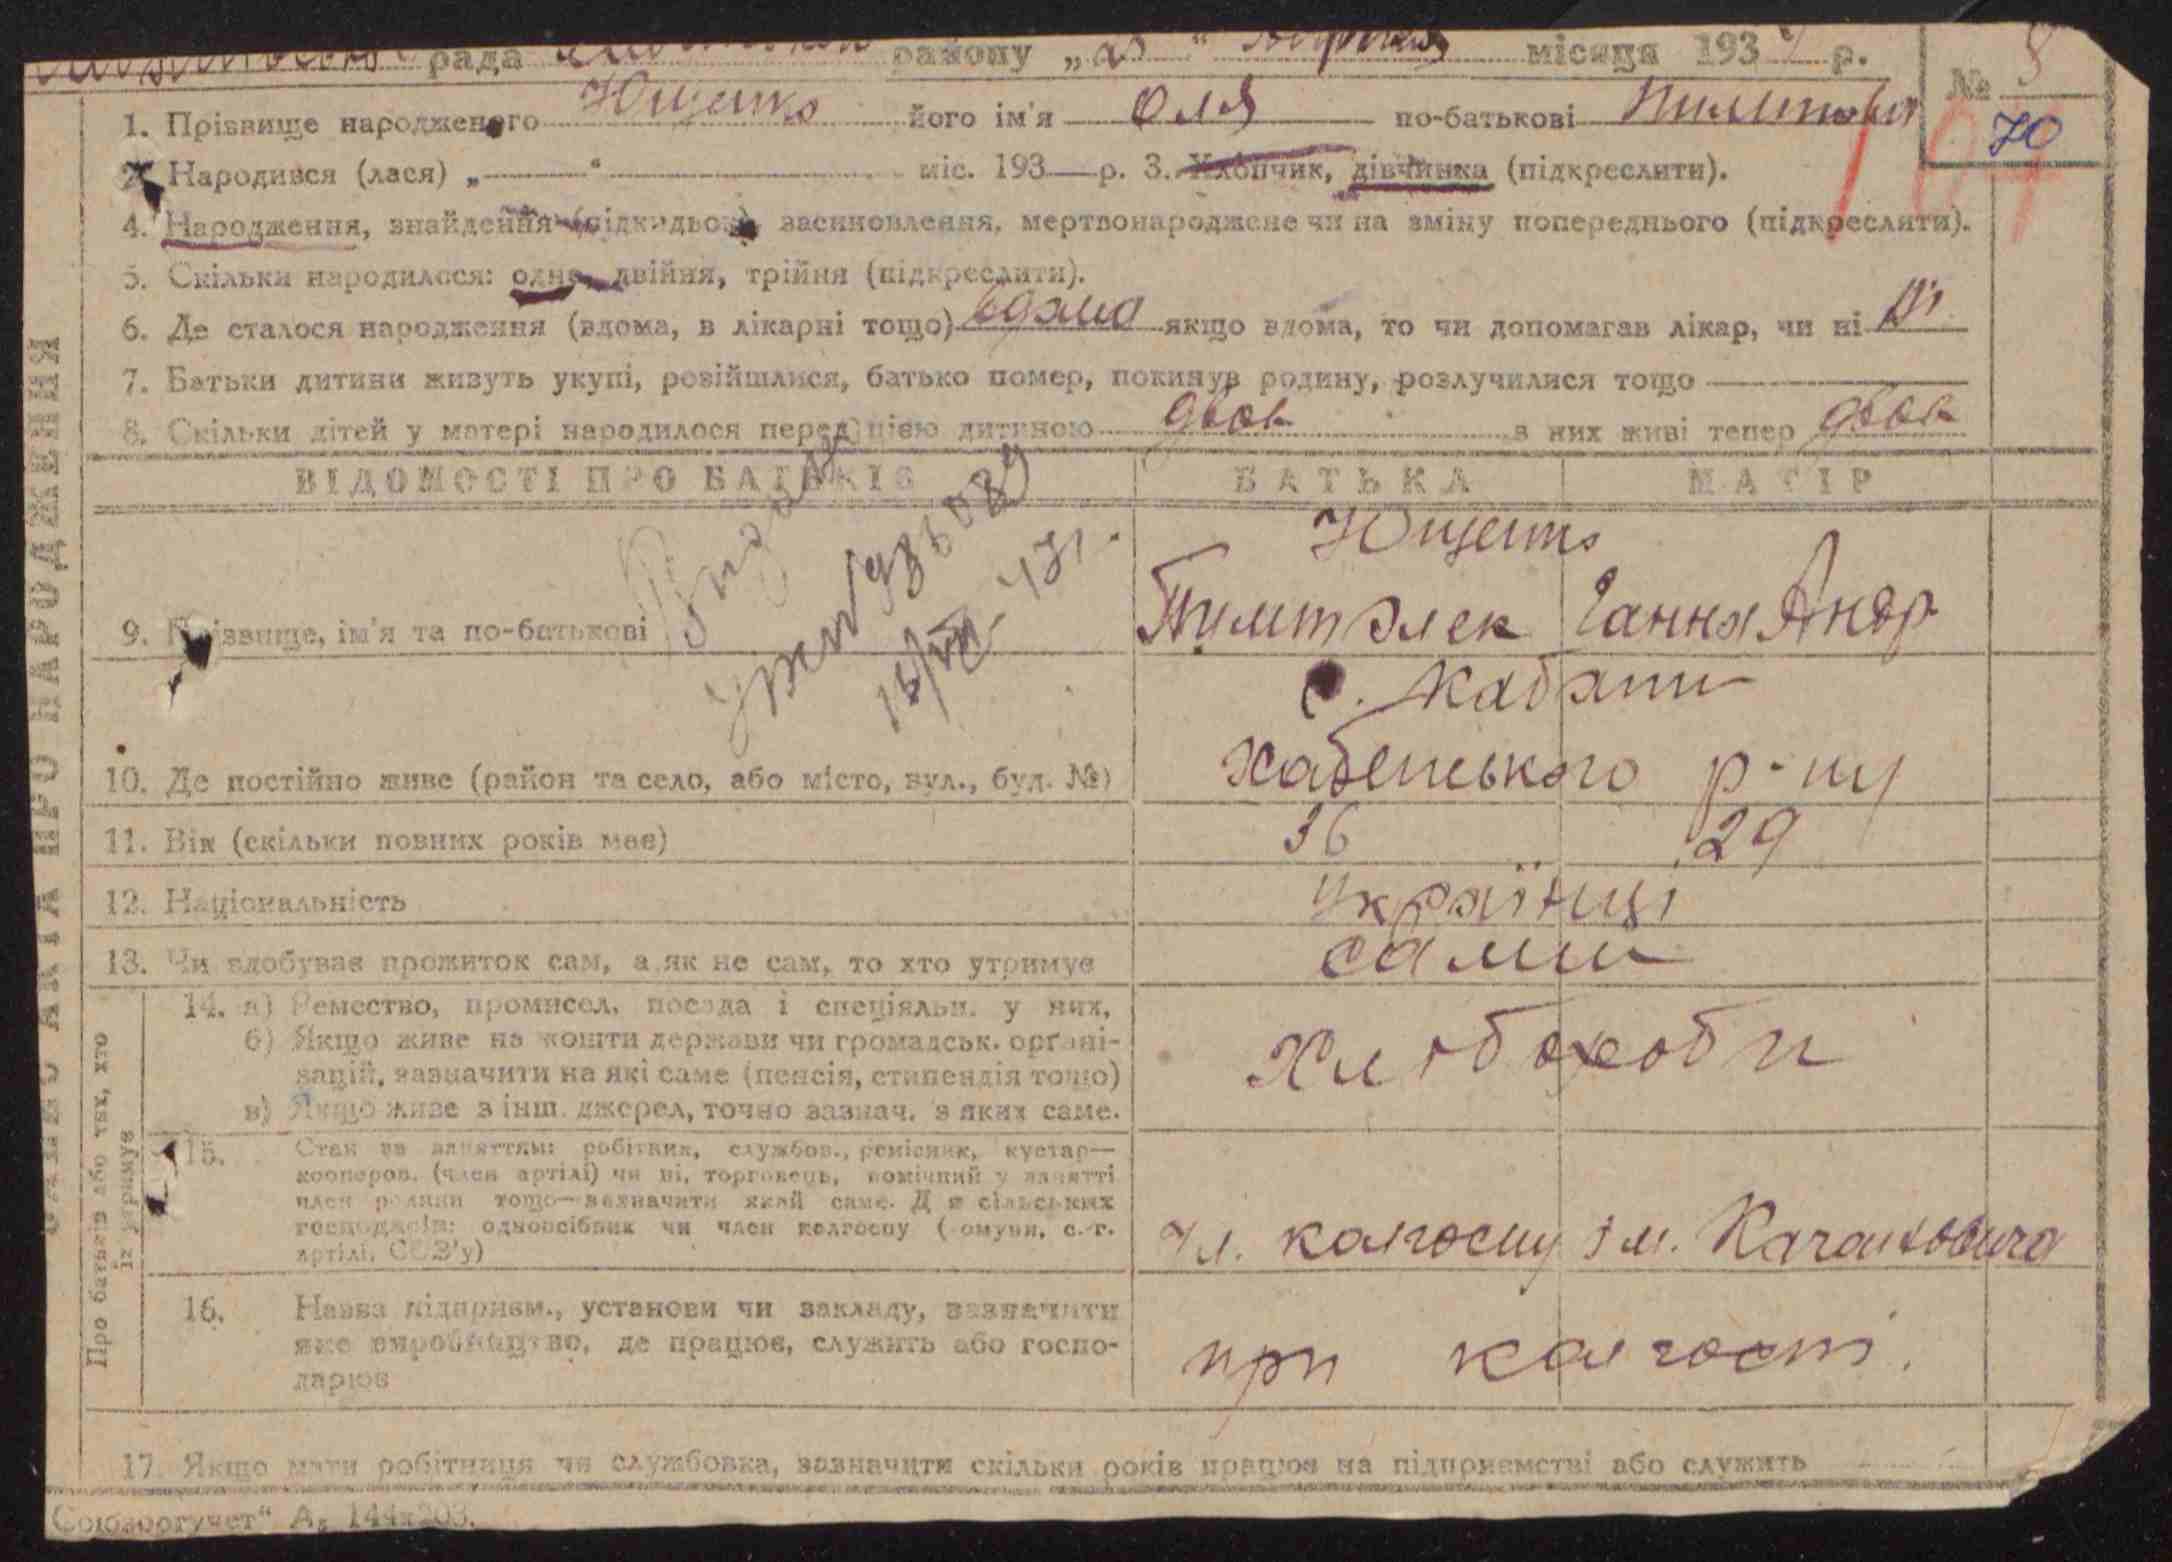 рада району „25“ місяця 193 р. № 8
1. Прізвище народженого Ющенко його ім'я Оля по-батькові 70
2. Народився (лася) „—“ міс. 193—р. 3. Хлопчик, дівчинка (підкреслити).
4. Народження, знайдення (підкидьок) засиновлення, мертвонароджене чи на зміну попереднього (підкреслити).
5. Скільки народилося: одне, двійня, трійня (підкреслити).
6. Де сталося народження (вдома, в лікарні тощо) вдома якщо вдома, то чи допомагав лікар, чи ні ні
7. Батьки дитини живуть укупі, розійшлися, батько помер, покинув родину, розлучилися тощо —
8. Скільки дітей у матері народилося перед цією дитиною двоє з них живі тепер двоє
ВІДОМОСТІ ПРО БАТЬКІВ БАТЬКА МАТІР
Ющенко
9. Прізвище, ім'я та по-батькові Пимт Олек Ганна Андр
16/VII-47р.
с. Кабани
10. Де постійно живе (район та село, або місто, вул., буд. №) Хабенського р-ну
11. Вік (скільки повних років має) 36 29
12. Національність українці
13. Чи здобуває прожиток сам, а як не сам, то хто утримує сами
Про батьків або тих, хто їх утримує
14. а) Ремество, промисел, посада і спеціяльн. у них,
б) Якщо живе на кошти держави чи громадськ. орґані-
зацій, зазначити на які саме (пенсія, стипендія тощо)
в) Якщо живе з інш. джерел, точно зазнач. з яких саме.
Хлібороби
15. Стан за заняттям: робітник, службов., ремісник, кустар—
кооперов. (член артілі) чи ні, торговець, помічний у занятті
член родини тощо—зазначити який саме. Для сільських
господарів: одноосібник чи член колгоспу (комуни, с.-г.
артілі, СОЗ'у)
чл. колгоспу ім. Кагановича
16. Назва підприєм., установи чи закладу, зазначити
яке виробництво, де працює, служить або госпо-
дарює
при колгоспі.
17. Якщо мати робітниця чи службовка, зазначити скільки років працює на підприємстві або служить
Союзоргучет“ А₅ 144×203.
АКТА ПРО НАРОДЖЕННЯ